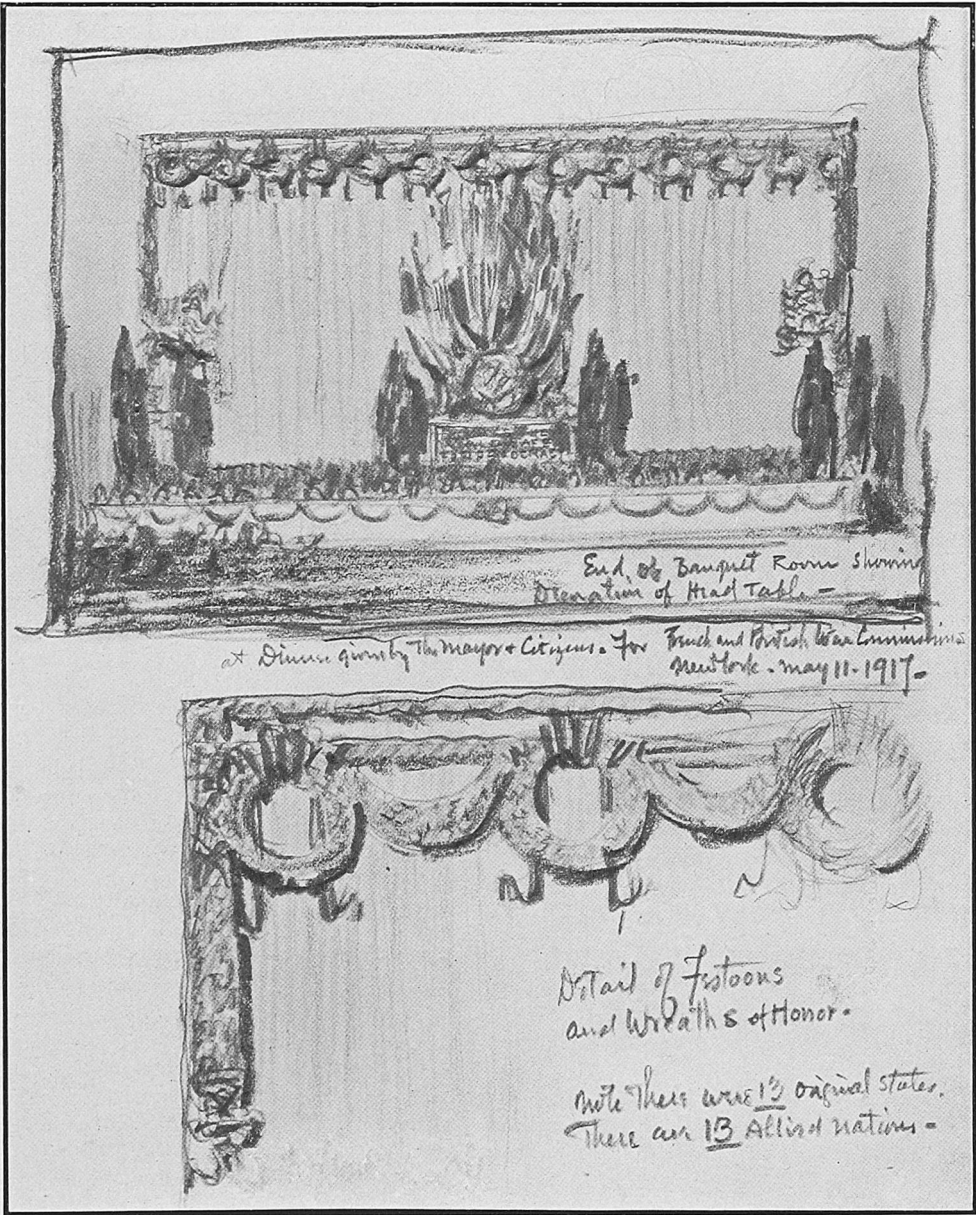 End of Banquet Room Showing
Decoration of Head Table -
at Dinner given by The Mayor & Citizens. For French and British War Commissions
New York - May 11 - 1917 -
Detail of Festoons
and Wreaths of Honor.
Note There were 13 original states.
There are 13 Allied nations -